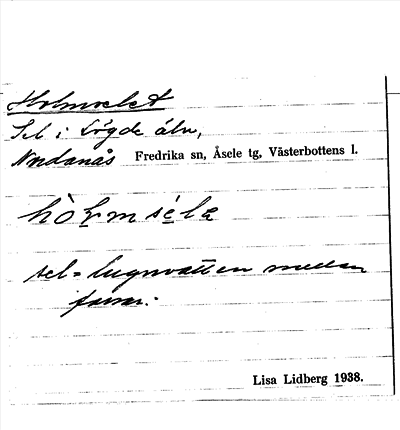 Holmselet
Sel i Lögde älv,
Nordanås Fredrika sn, Åsele tg, Västerbottens l.
sel = lugnvatten mellan
forsar.
Lisa Lidberg 1938.